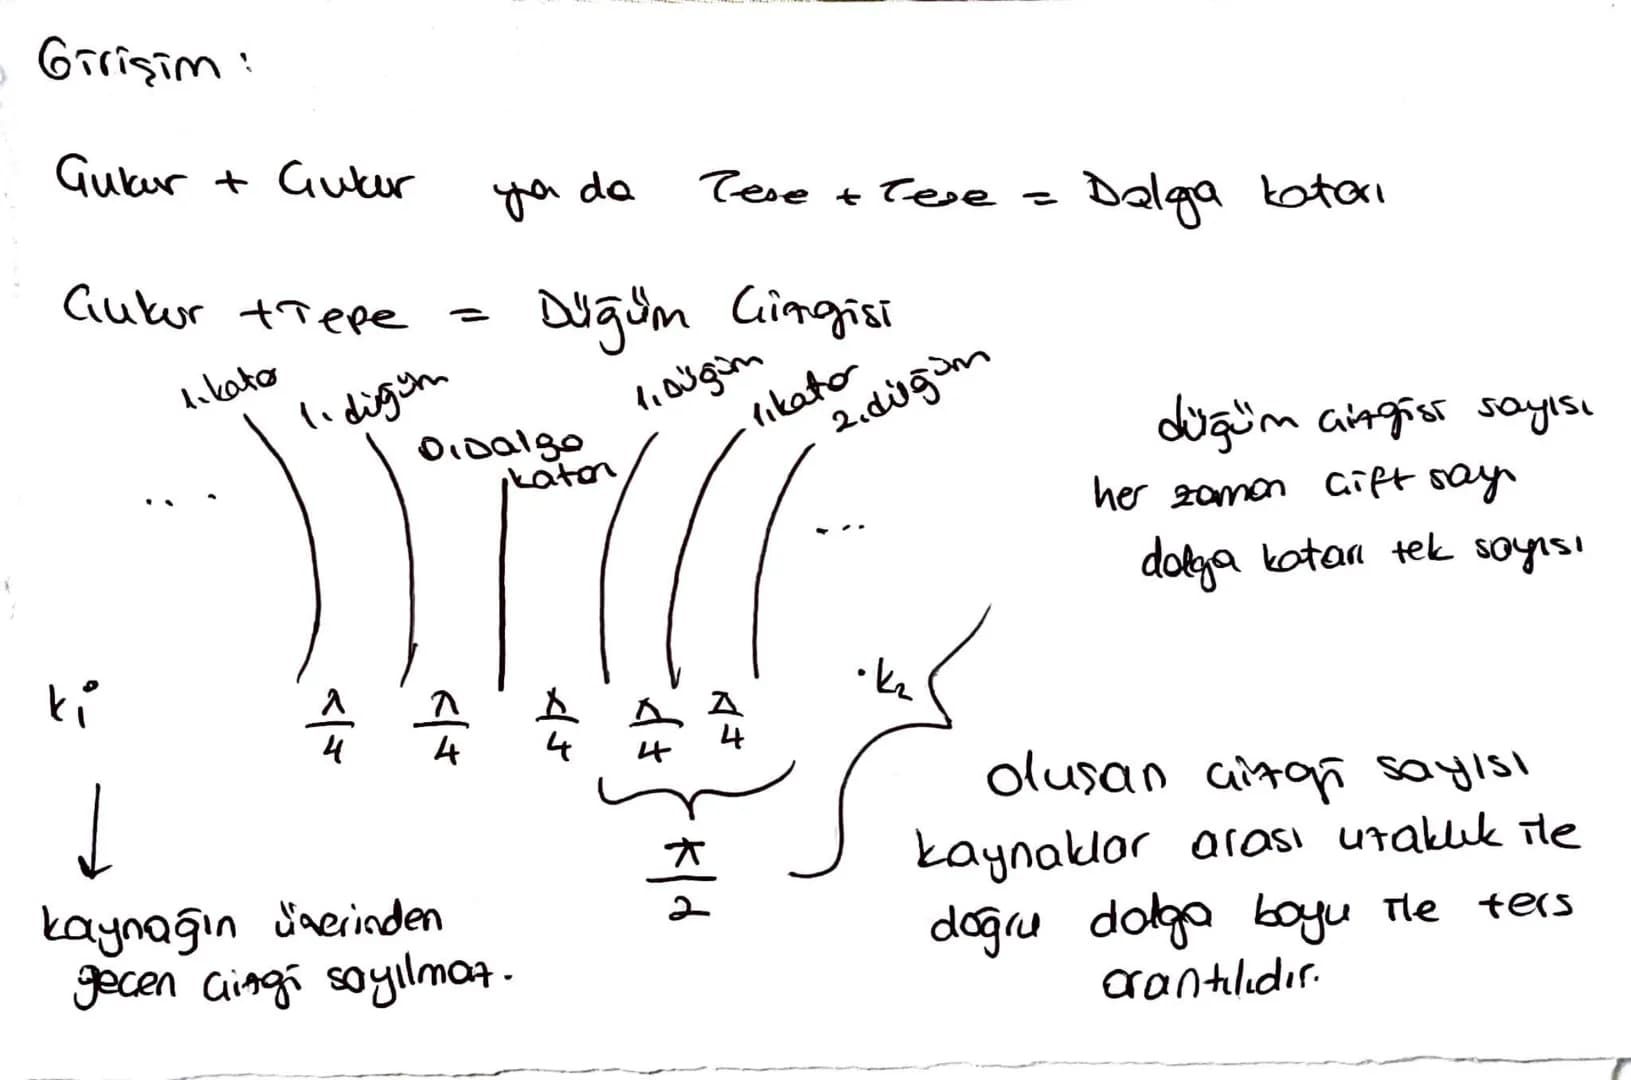 Girişim :
Çukur + Çukur ya da Tepe + Tepe = Dalga katarı
Çukur + Tepe = Düğüm Çizgisi
1. katar
1. düğüm
0. Dalga
katarı
1. Düğüm
1. katar
2. düğüm
...
...
düğüm çizgisi sayısı
her zaman çift sayı
dalga katarı tek sayısı
k₁
λ/4 λ/4 λ/4 λ/4 λ/4
k₂
λ/2
kaynağın üzerinden
geçen çizgi sayılmaz.
oluşan çizgi sayısı
kaynaklar arası uzaklık ile
doğru dalga boyu ile ters
orantılıdır.